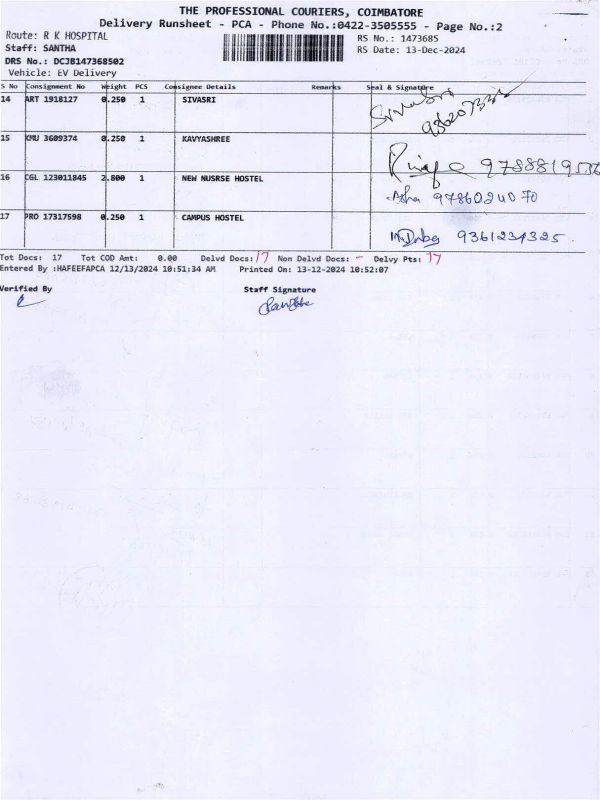 THE PROFESSIONAL COURIERS, COIMBATORE
Delivery Runsheet - PCA - Phone No.:0422-3505555 - Page No.:2
Route: R K HOSPITAL
RS No.: 1473685
Staff: SANTHA
RS Date: 13-Dec-2024
DRS No.: DCJB147368502
Vehicle: EV Delivery
S No Consignment No Weight PCS Consignee Details Remarks Seal & Signature
14 ART 1918127 0.250 1 SIVASRI Sivasri
15 KMU 3609374 0.250 1 KAVYASHREE
16 CGL 123011845 2.800 1 NEW NUSRSE HOSTEL Asha 9786024070
17 PRO 17317598 0.250 1 CAMPUS HOSTEL 9361234325
Tot Docs: 17 Tot COD Amt: 0.00 Delvd Docs: 17 Non Delvd Docs: - Delvy Pts: 17
Entered By :HAFEEFAPCA 12/13/2024 10:51:34 AM Printed On: 13-12-2024 10:52:07
Verified By Staff Signature